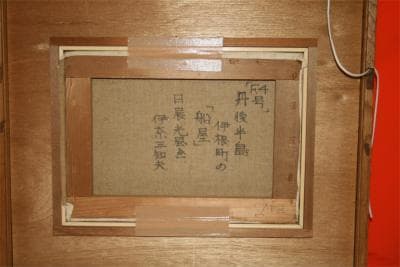 「F4号」
丹後半島
伊根町の
「船屋」
日展光風会
伊奈三知夫